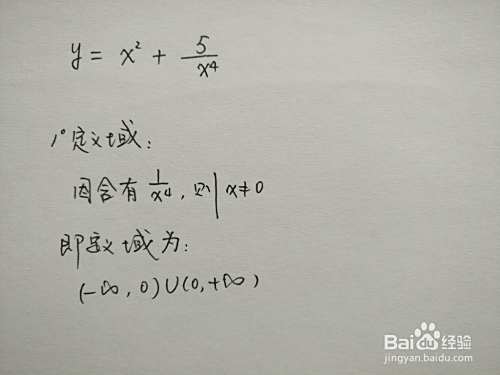 y = x² + 5/x⁴
1° 定义域:
因含有 1/x⁴, 则 x≠0
即定义域为:
(-∞, 0)∪(0, +∞)
Baidu 经验
jingyan.baidu.com